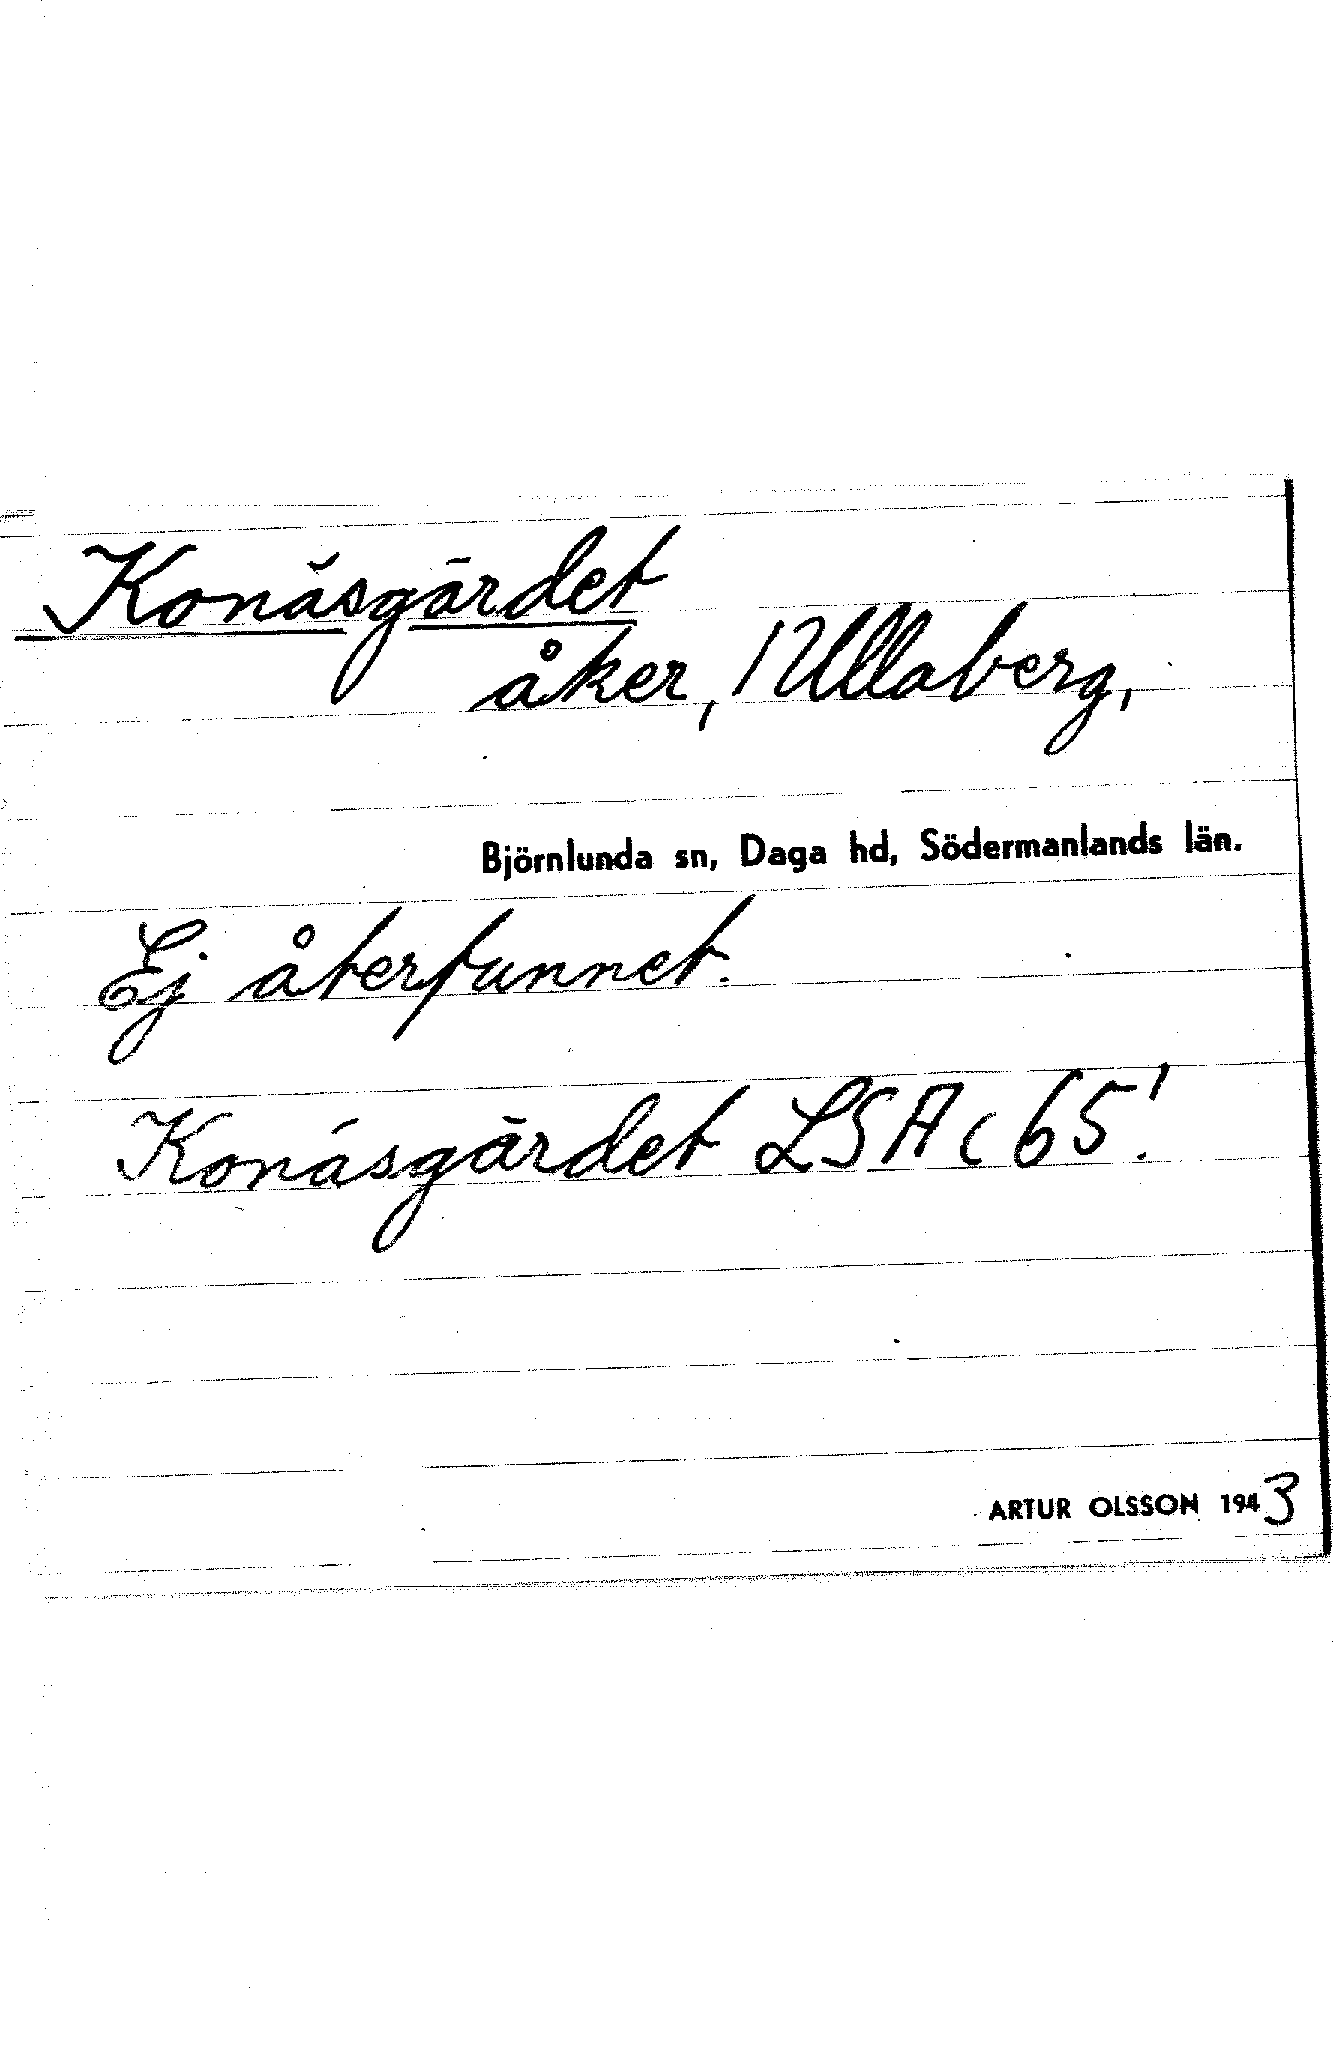 Konäsgärdet
åker, 1 Ullaberg,
Björnlunda sn, Daga hd, Södermanlands län.
Ej återfunnet.
Konäsgärdet LSA c 65!
ARTUR OLSSON 1943